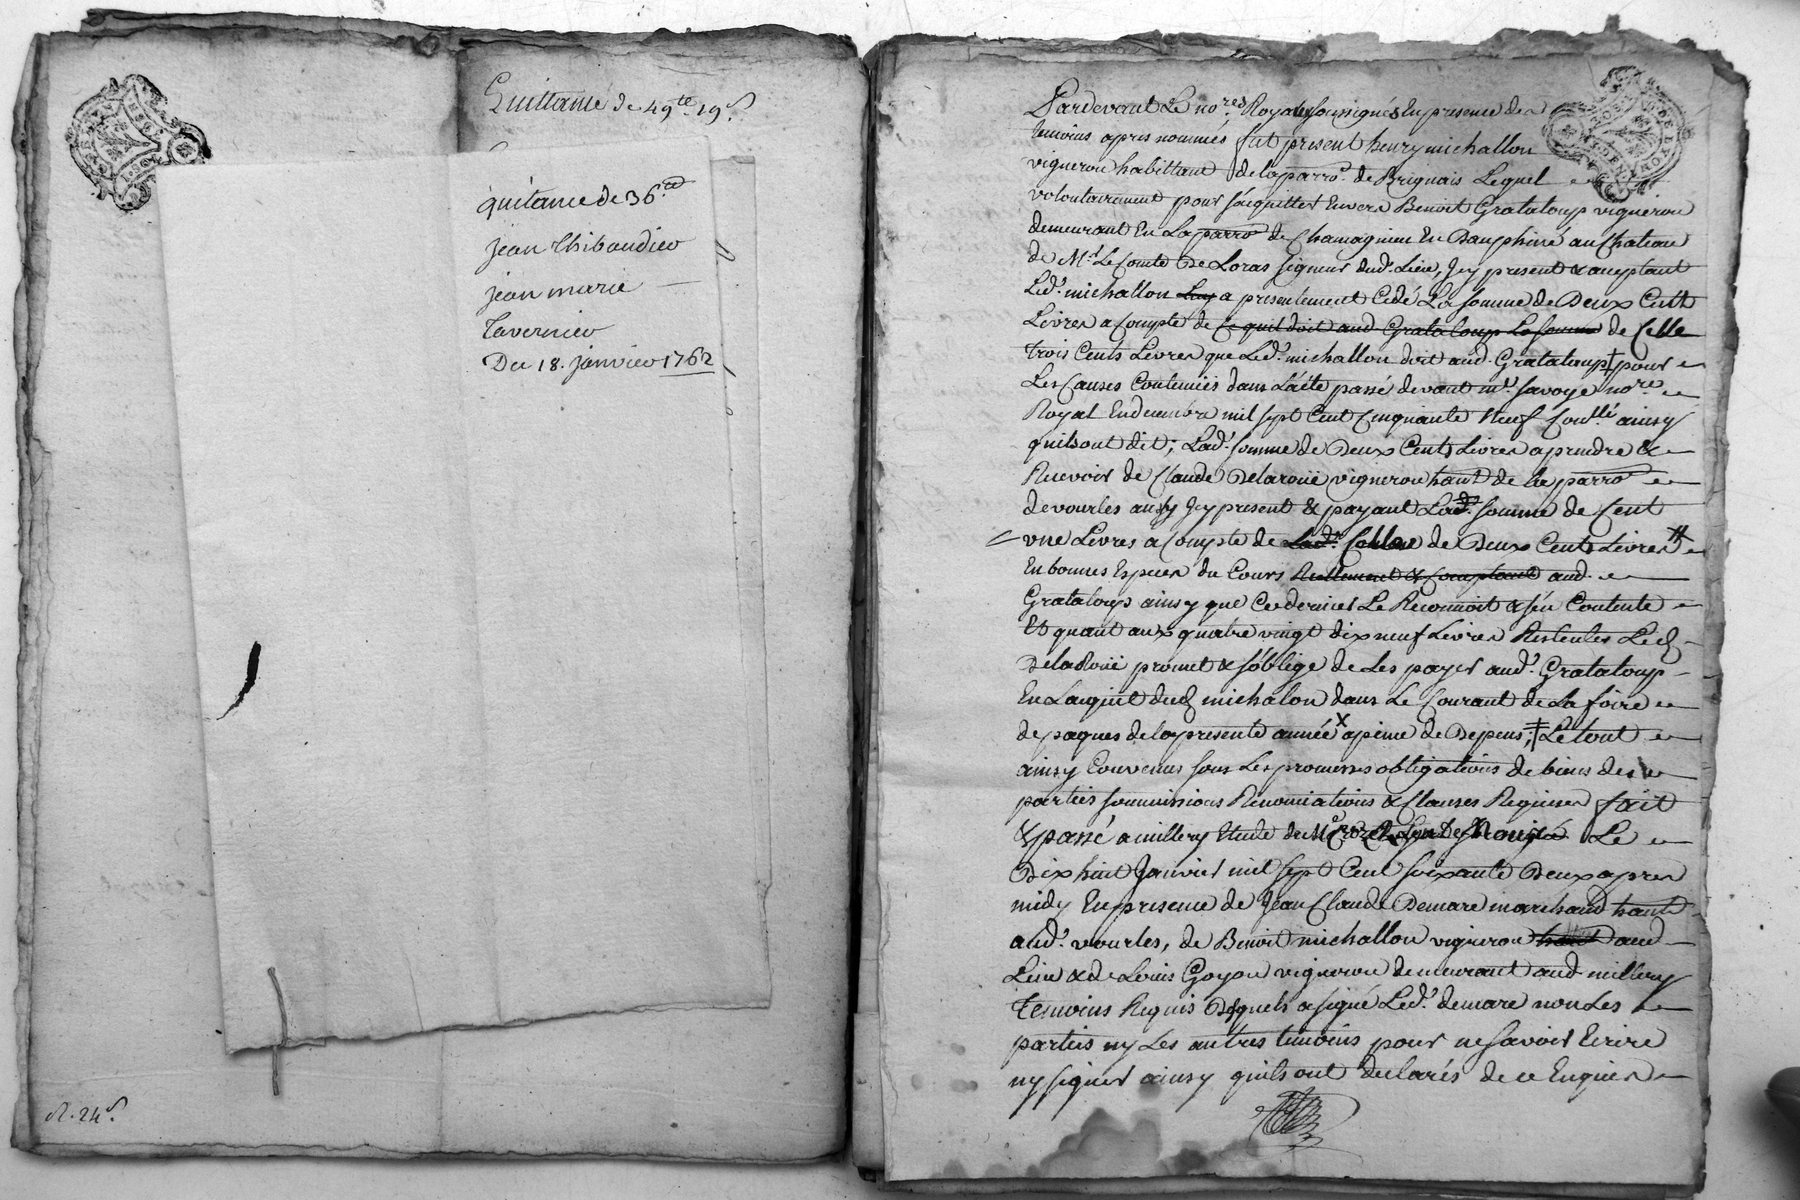 Quittance de 49tt 19s
quitance de 36tt
jean Thibaudier
jean marie
Tavernier
Du 18. janvier 1762
R. 24s.
Pardevant Le nores Royal soussignés En presence des
temoins apres nommés fut present henry michallon
vigneron habittant de la parro. de Brignais Lequel
volontairement pour s'acquitter Envers Benoit Grataloup vigneron
demeurant En La parro de Chamagnieu En Dauphiné au Chateau
de Mr Le Comte De Loras seigneur dud. Lieu, Icy present & acceptant
Led. michallon Luy a presentement Cedé La somme de Deux Cents
Livres a Compte de Ce quil doit aud Grataloup La somme de Celle
trois Cents Livres que Led. michallon doit aud. Grataloup pour
Les Causes Contenües dans L'acte passé devant me. Savoye nore.
Royal En decembre mil sept Cent Cinquante Neuf Conllé ainsy
quils ont dit; Lad. somme de Deux Cents Livres a prendre &
Recevoir de Claude Delaroüe vigneron hant de la parro
de vourles aussy Icy present & payant Lad. somme de Cent
une Livres a Compte de Lad. Celle de Deux Cents Livres
En bonnes Especes du Cours Reellement & Comptant aud.
Grataloup ainsy que Ce dernier Le Reconnoit & s'en Contente
Et quant aux quatre vingt dix neuf Livres Restentes Led
Delaroüe promet & s'oblige de Les payer aud. Grataloup
En L'acquit dud michalon dans Le Courant de La foire
de paques de la presente année a peine de Depens, Le tout
ainsy Convenus sous Les promesses obligations de biens des
parties soumissions Renonciations & Clauses Requises fait
& passé a millery Etude de Me Le
Dix huit Janvier mil sept Cent soixante Deux apres
midy En presence de Jean Claude Demare marchand hant
aud. vourles, de Benoit michallon vigneron hant aud
Lieu & de Louis Goyon vigneron demeurant aud millery
Temoins Requis Desquels a signé Led. demare non Les
parties ny Les autres temoins pour ne savoir Ecrire
ny signer ainsy quils ont declarés de ce Enquis